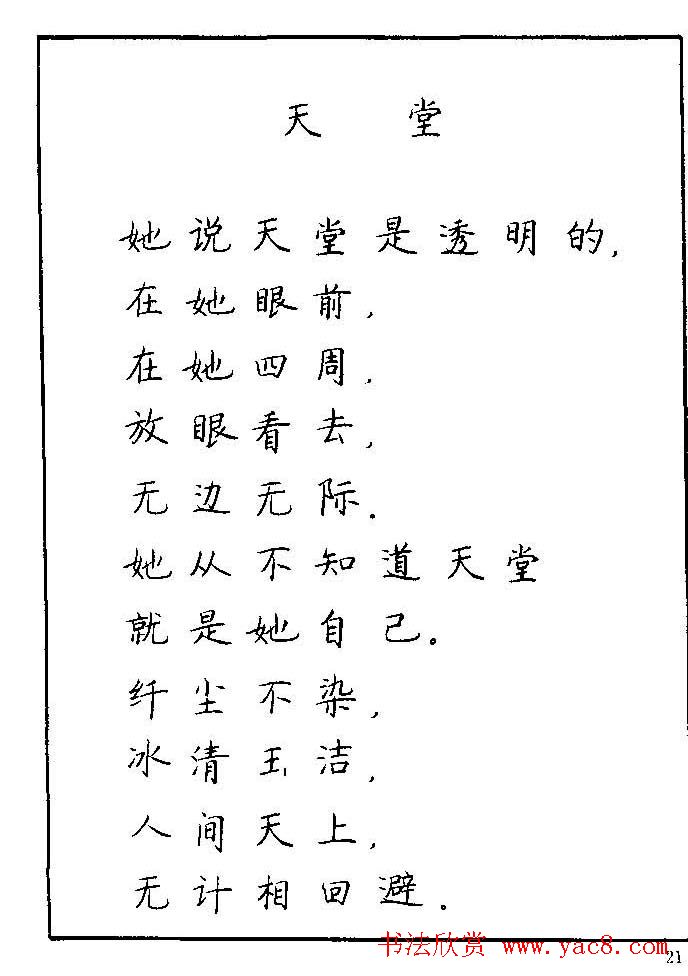 天 堂
她说天堂是透明的,
在她眼前,
在她四周,
放眼看去,
无边无际.
她从不知道天堂
就是她自己.
纤尘不染,
冰清玉洁,
人间天上,
无计相回避.
书法欣赏 www.yac8.com
21